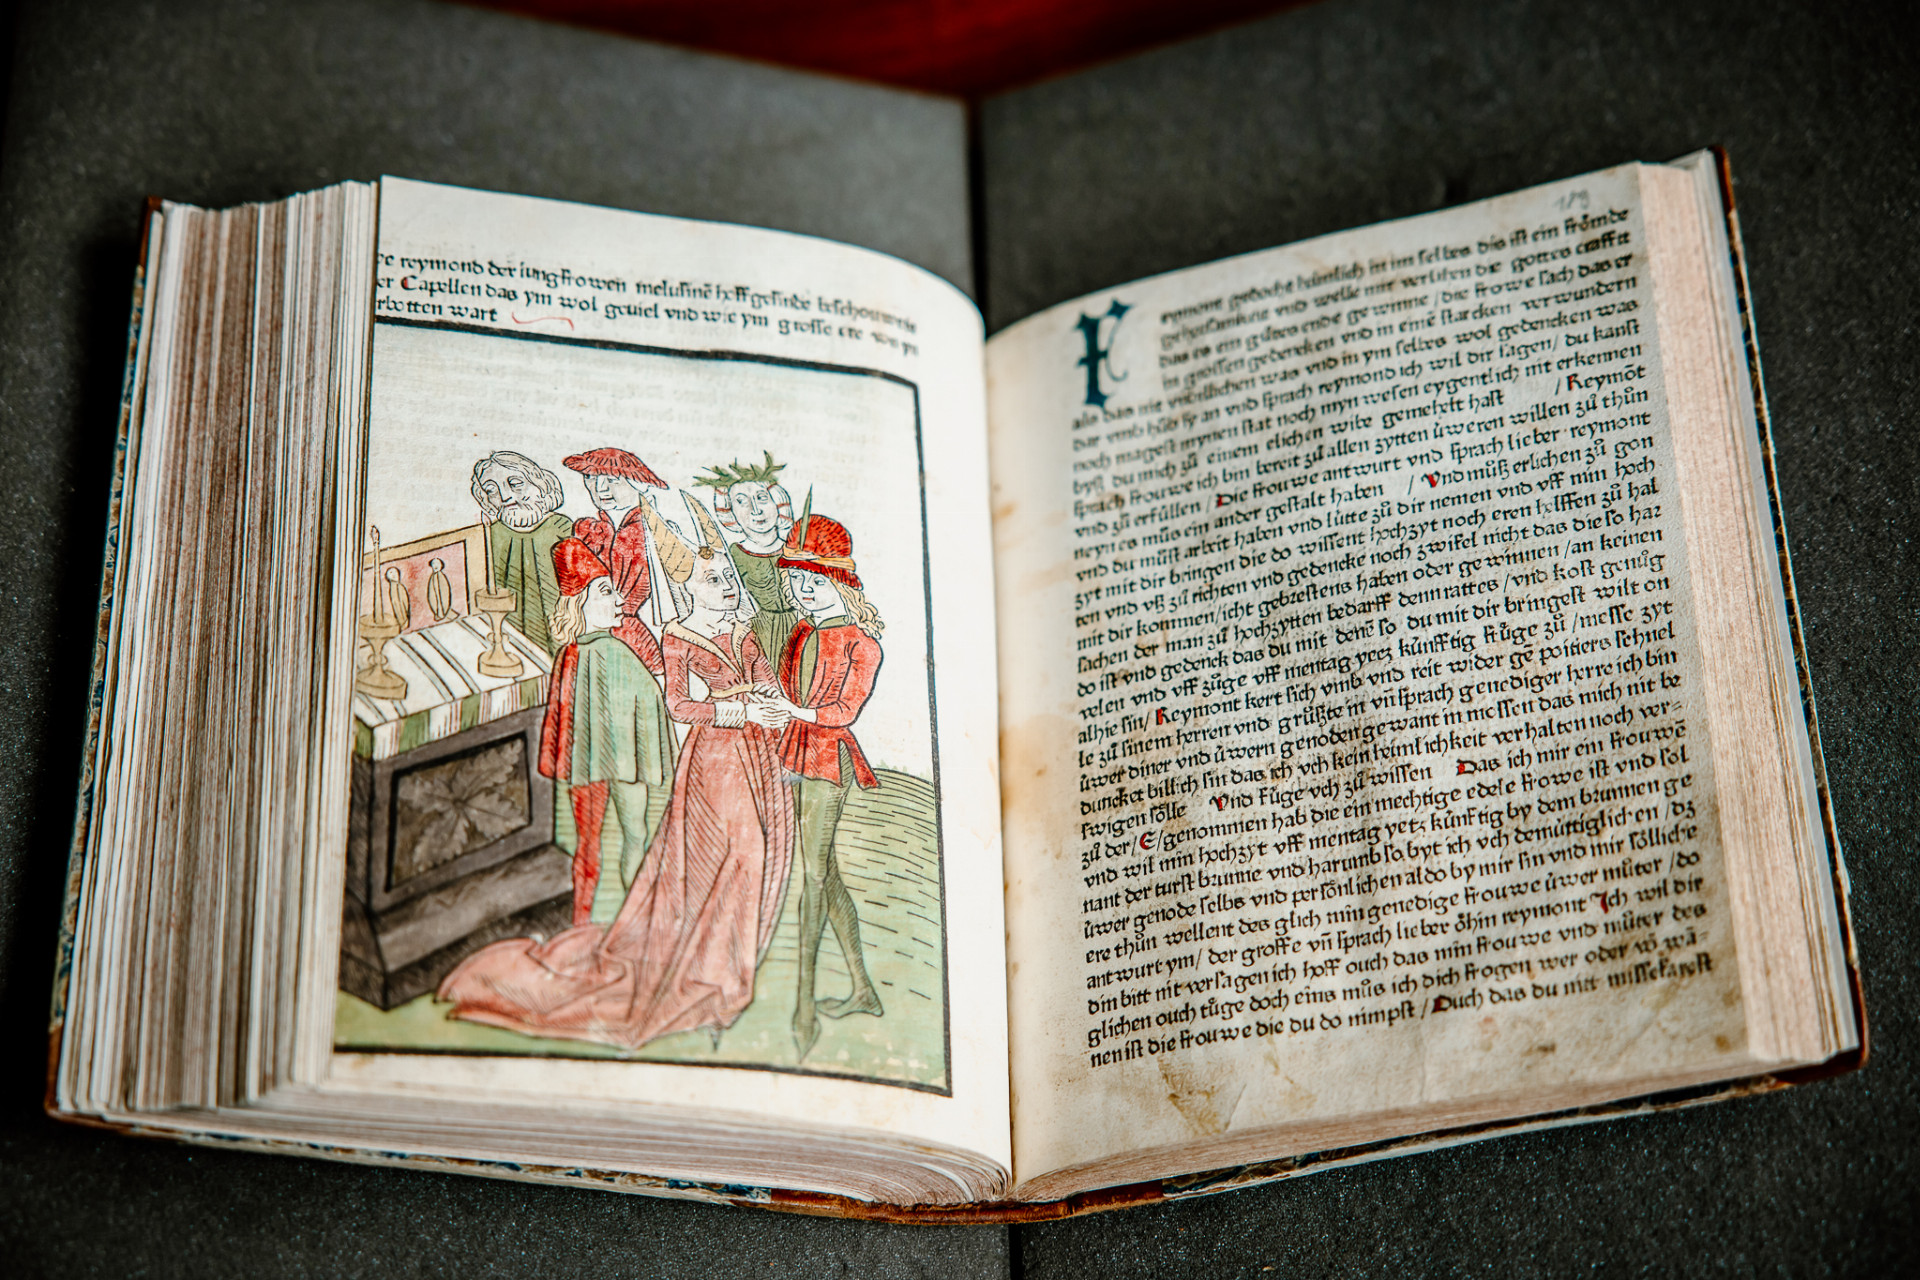 reymond der iungfrowen melusinē hoffgesinde beschouwete
er Capellen das ym wol geuiel vnd wie ym grosse ere
botten wart
189
eymont gedocht heimlich in im selbes dis ist ein frömde
gehorsamkeit vnd welle mir verlihen die gottes crafft
das es ein gůtes ende gewinne / die frowe sach das er
in grossen gedencken vnd in einē starcken verwundern
was vnd in ym selbes wol gedencken was
als das nit vnbillichen vnd sprach reymond ich wil dir sagen / du kanst
dar vmb hůb sy an noch myn wesen eygentlich nit erkennen
noch magest mynen stat elichen wibe gemehelt hast / Reymōt
byst du mich zů einem zů allen zytten ůweren willen zů thůn
sprach frouwe ich bin bereit
vnd zů erfüllen / Die frouwe antwurt vnd sprach lieber reymont
neyn es můs ein ander gestalt haben / Vnd můß erlichen zů gon
vnd du můst arbeit haben vnd lütte zů dir nemen vnd vff min hoch
zyt mit dir bringen die do wissent hochzyt noch eren helffen zů hal
ten vnd vß zů richten vnd gedencke noch zwifel nicht das die so har
mit dir kommen / icht gebrestens haben oder gewinnen / an keinen
sachen der man zů hochzytten bedarff denn rattes / vnd kost genůg
do ist vnd gedenck das du mit denē so du mit dir bringest wilt on
velen vnd vff zůge vff mentag yecz künfftig frůge zů / messe zyt
alhie sin / Reymont kert sich vmb vnd reit wider gē poitiers schnel
le zů sinem herren vnd grůßte in vñ sprach genediger herre ich bin
ůwer diner vnd ůwern genoden gewant in mossen das mich nit be
duncket billich sin das ich vch kein heimlichkeit verhalten noch ver=
swigen sölle Vnd fůge vch zů wissen Das ich mir ein frouwē
zů der / E / genommen hab die ein mechtige edele frowe ist vnd sol
vnd wil min hochzyt vff mentag yetz künftig by dem brunnen ge
nant der turst brunne vnd harumb so byt ich vch demůttiglichen / dz
ůwer genode selbs vnd persönlichen aldo by mir sin vnd mir sölliche
ere thůn wellent des glich min genedige frouwe ůwer můter / do
antwurt ym / der groffe vñ sprach lieber öhin reymont Ich wil dir
din bitt nit versagen ich hoff ouch das min frouwe vnd můter des
glichen ouch tůge doch eins můs ich dich frogen wer oder vō wā=
nen ist die frouwe die du do nimpst / Ouch das du nit missefarest